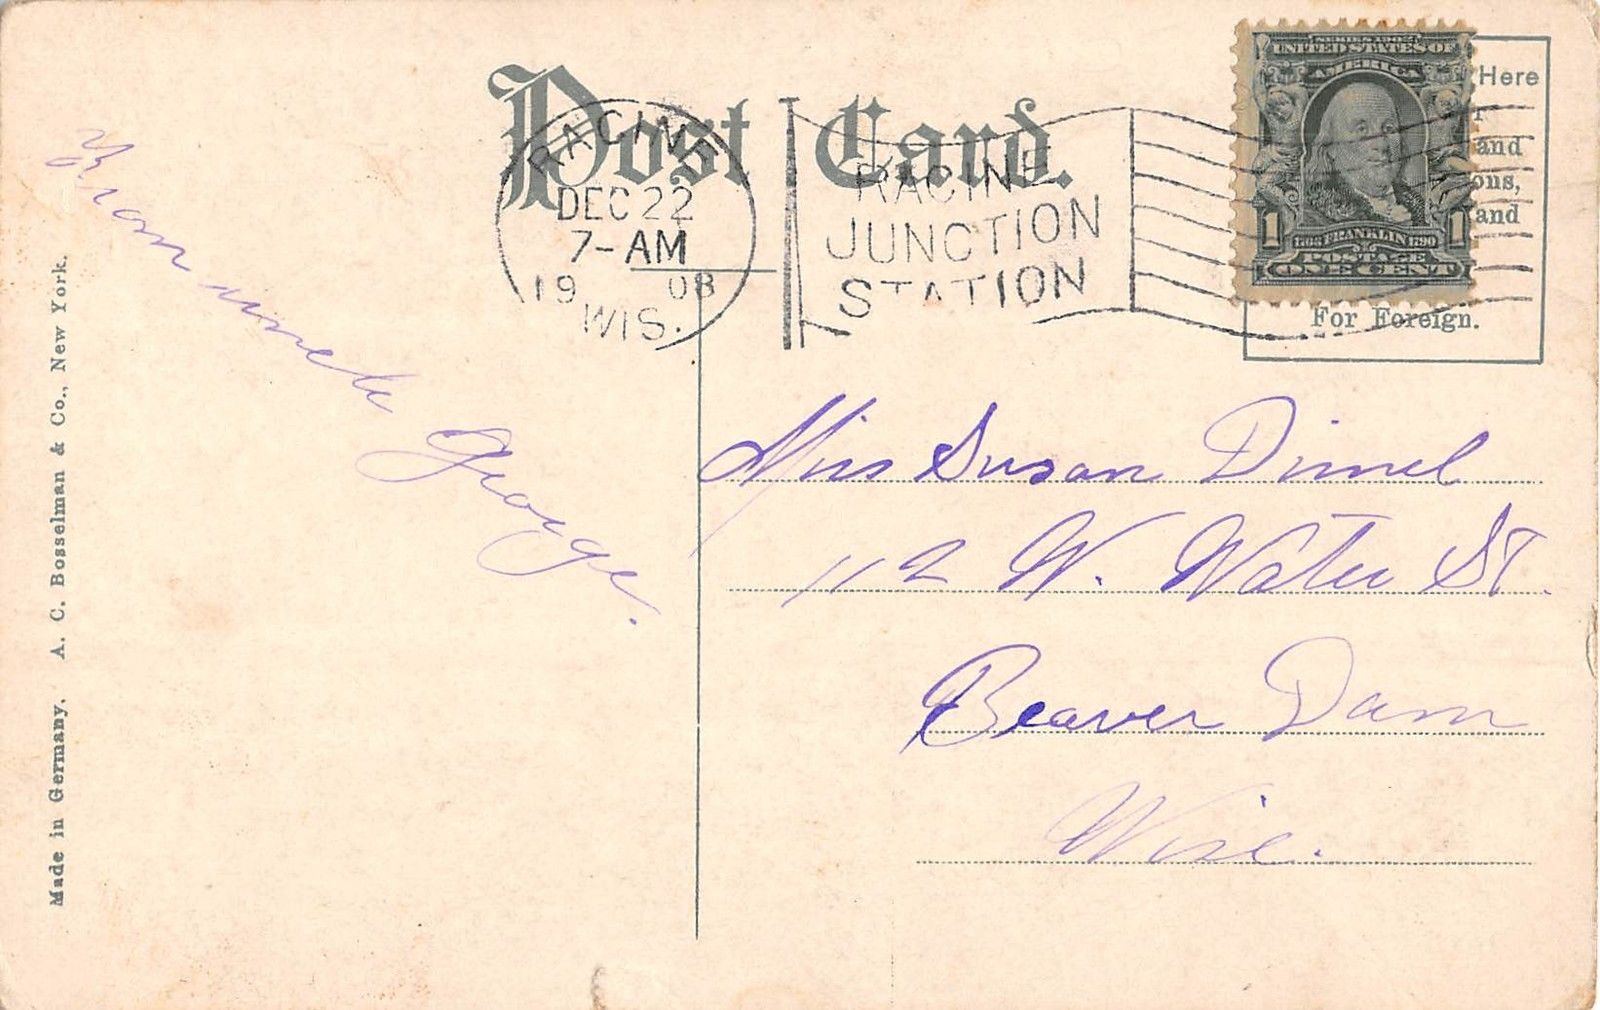 Post Card.
RACINE
DEC 22
7-AM
1908
WIS.
RACINE
JUNCTION
STATION
SERIES 1902
UNITED STATES OF
AMERICA
1 1706 FRANKLIN 1790 1
POSTAGE
ONE CENT
Here
and
ons,
and
For Foreign.
From uncle George.
Miss Susan Dimel
112 W. Water St.
Beaver Dam
Wisc.
Made in Germany. A. C. Bosselman & Co., New York.